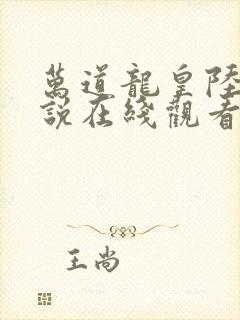 萬道龍皇陸
說在綫觀看
王尚